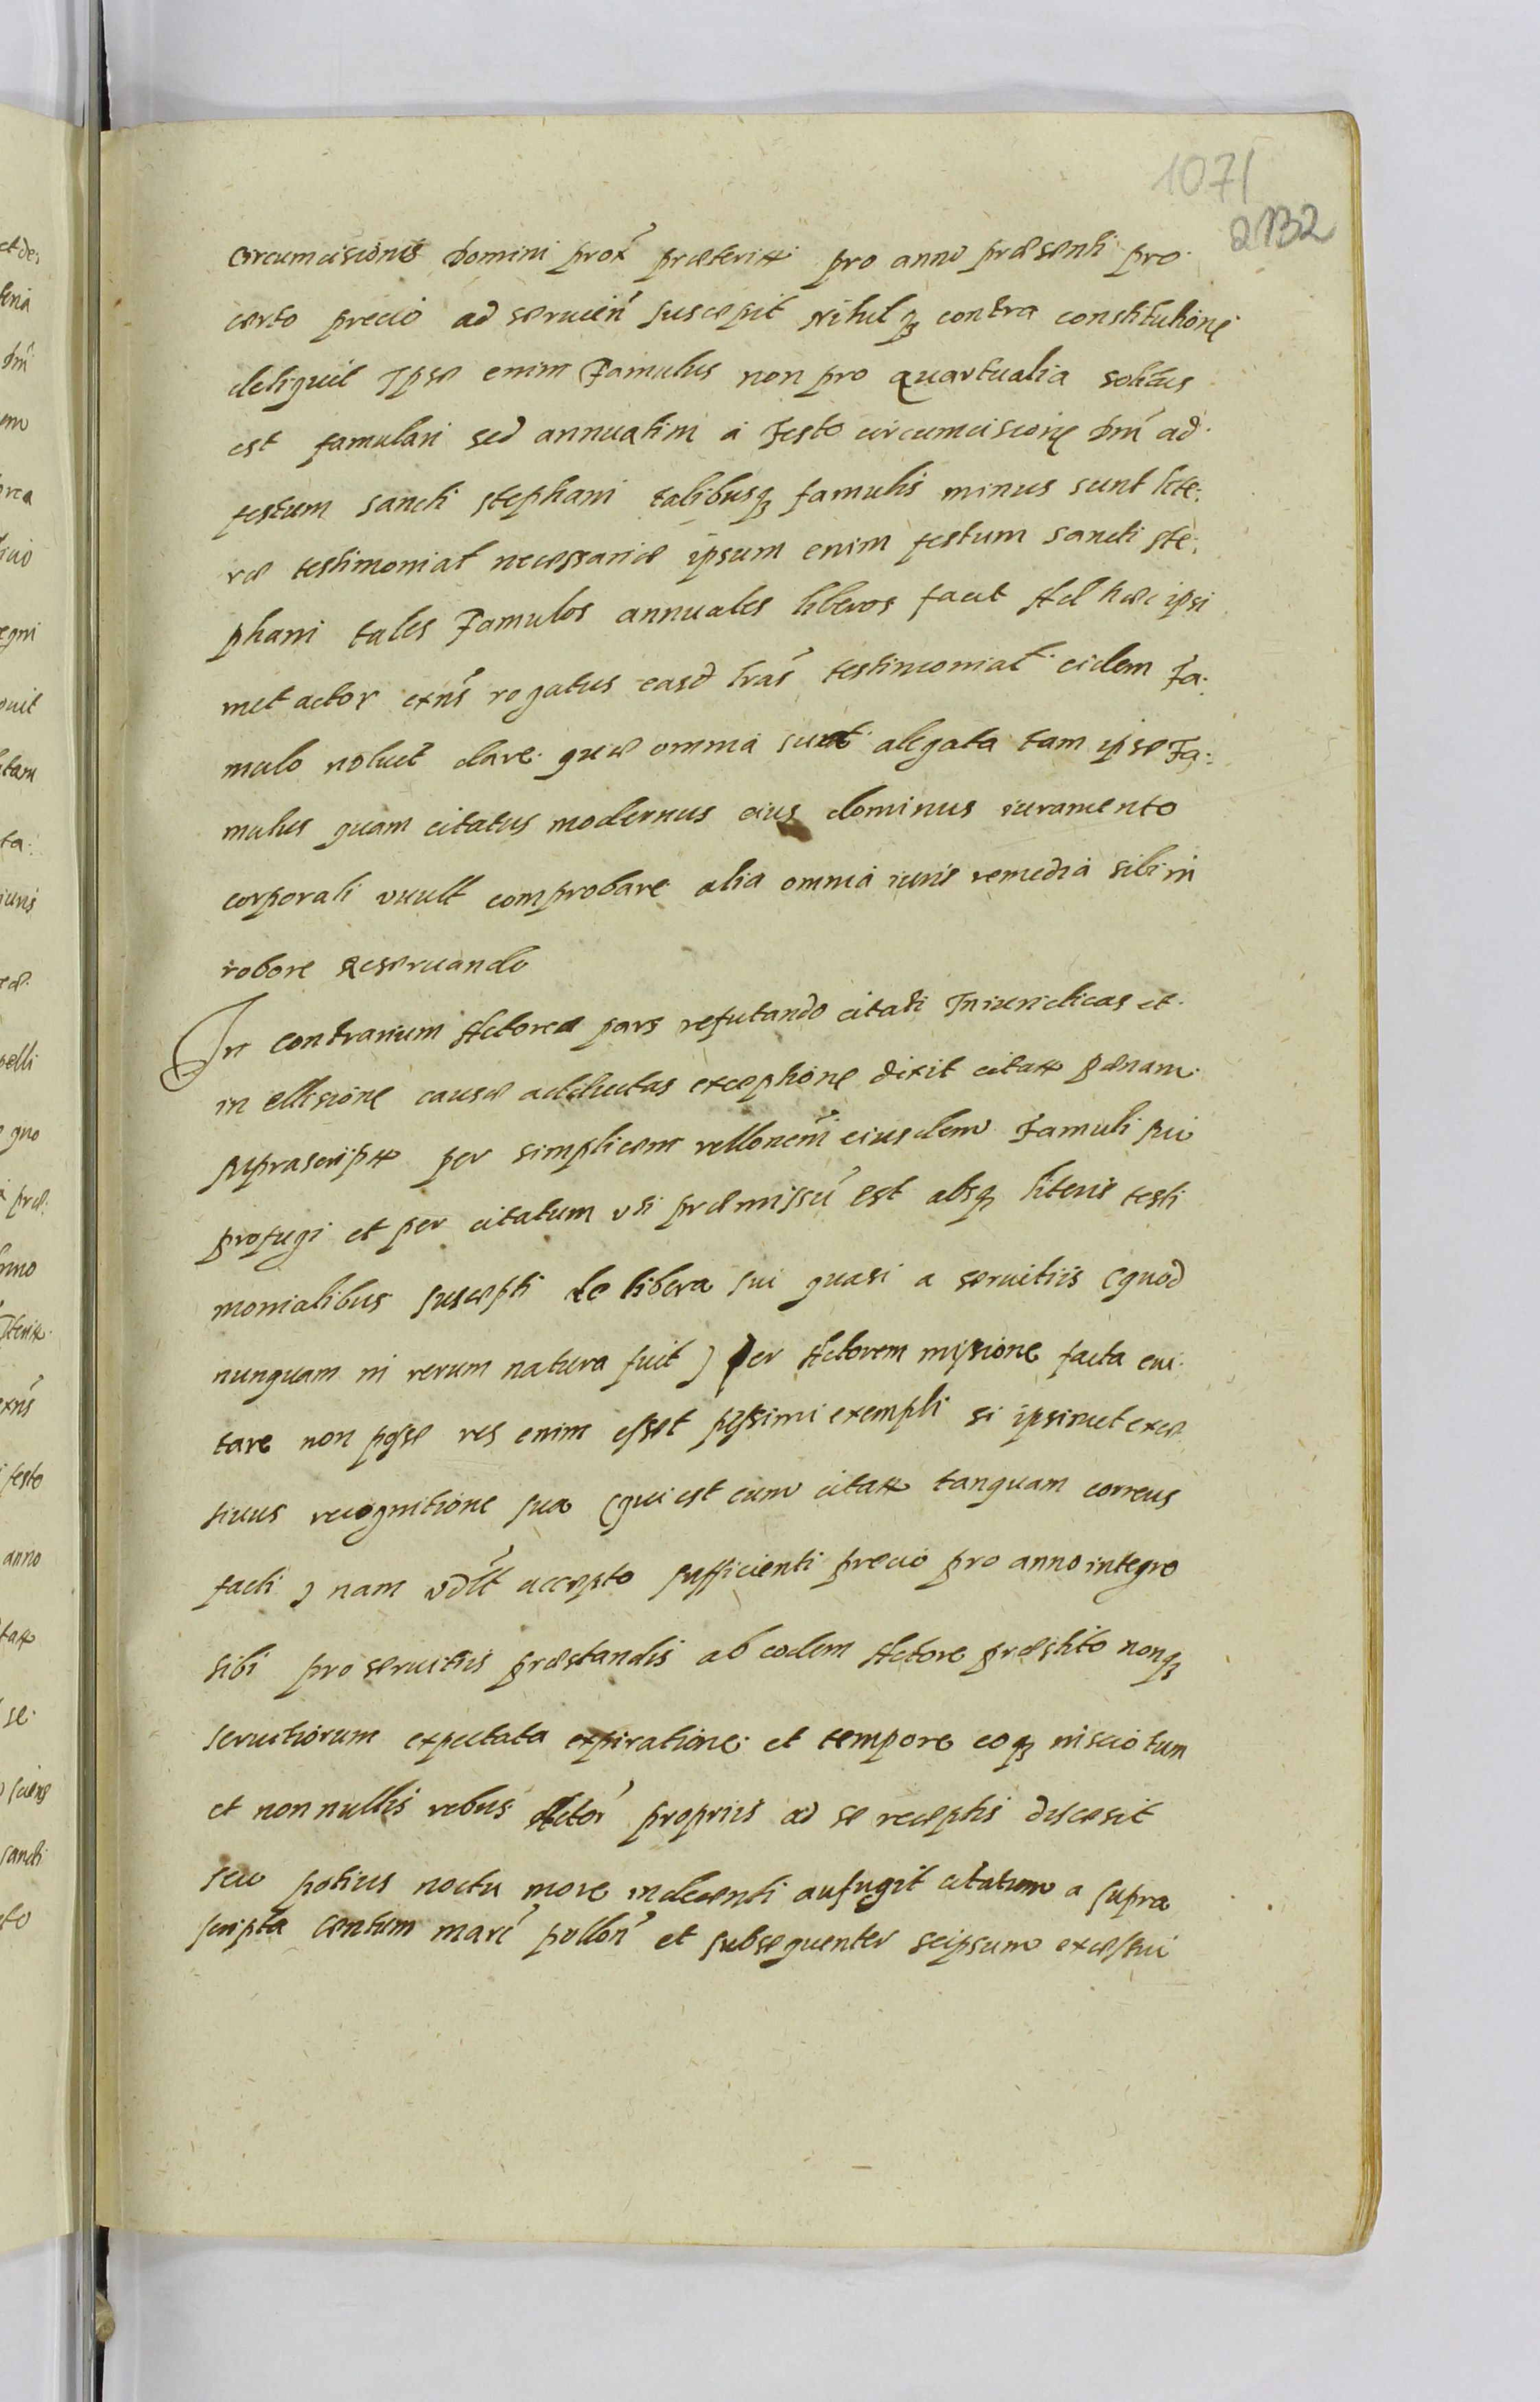 1071
2132
circumcisionis Domini prox̃ præteritæ pro anno præsenti pro
certo precio ad seruien̄ suscepit Nihilq̃ contra constitutionẽ
deliquit Ipse enim Famulus non pro quartualia solitus
est famulari sed annuatim a Festo circumcisionẽ Dñi ad
festum sancti stephani talibusq̃ famulis minus sunt lite:
ræ testimonial necessariæ ipsum enim festum sancti ste:
phani tales Famulos annuales liberos facit Ad hæc ipsi
met actor exñs rogatus easd lr̃as testimonial eidem Fa:
mulo noluit dare quæ omnia sunt alegata tam ipse Fa:
mulus quam citatus modernus eius dominus iuramento
corporali vuult comprobare alia omnia iuris remedia sibi in
robore reseruando
In contrarium Actorea pars refutando citati Iniuridicas et
in ellisionẽ causæ adductas exceptionẽ dixit citatæ pænam
supra scriptæ per simplicem rellonem̃ eiusdem Famuli sui
profugi et per citatum vti præmissũ est absq̃ literis testi
monialibus suscepti de libera sui quasi a seruitiis (quod
nunquam in rerum natura fuit) per Actorem missionẽ facta eui
tare non posse res enim esset pessimi exempli si ipsimet exce
siuus recognitione sua (qui est cum citatæ tanquam correus
facti) nam vdlt accepto sufficienti precio pro anno integro
sibi pro seruitiis præstandis ab eodem Actore præstito nonq̃
seruitiorum expectata expiratione et tempore eoq̃ inscio tum
et non nullis rebus Actor̃ propriis ad se receptis discesit
seu potius noctu more indecenti aufugit citatum a supra
scripta centum marc̃ pollon̄ et subsequenter seipsum excessui